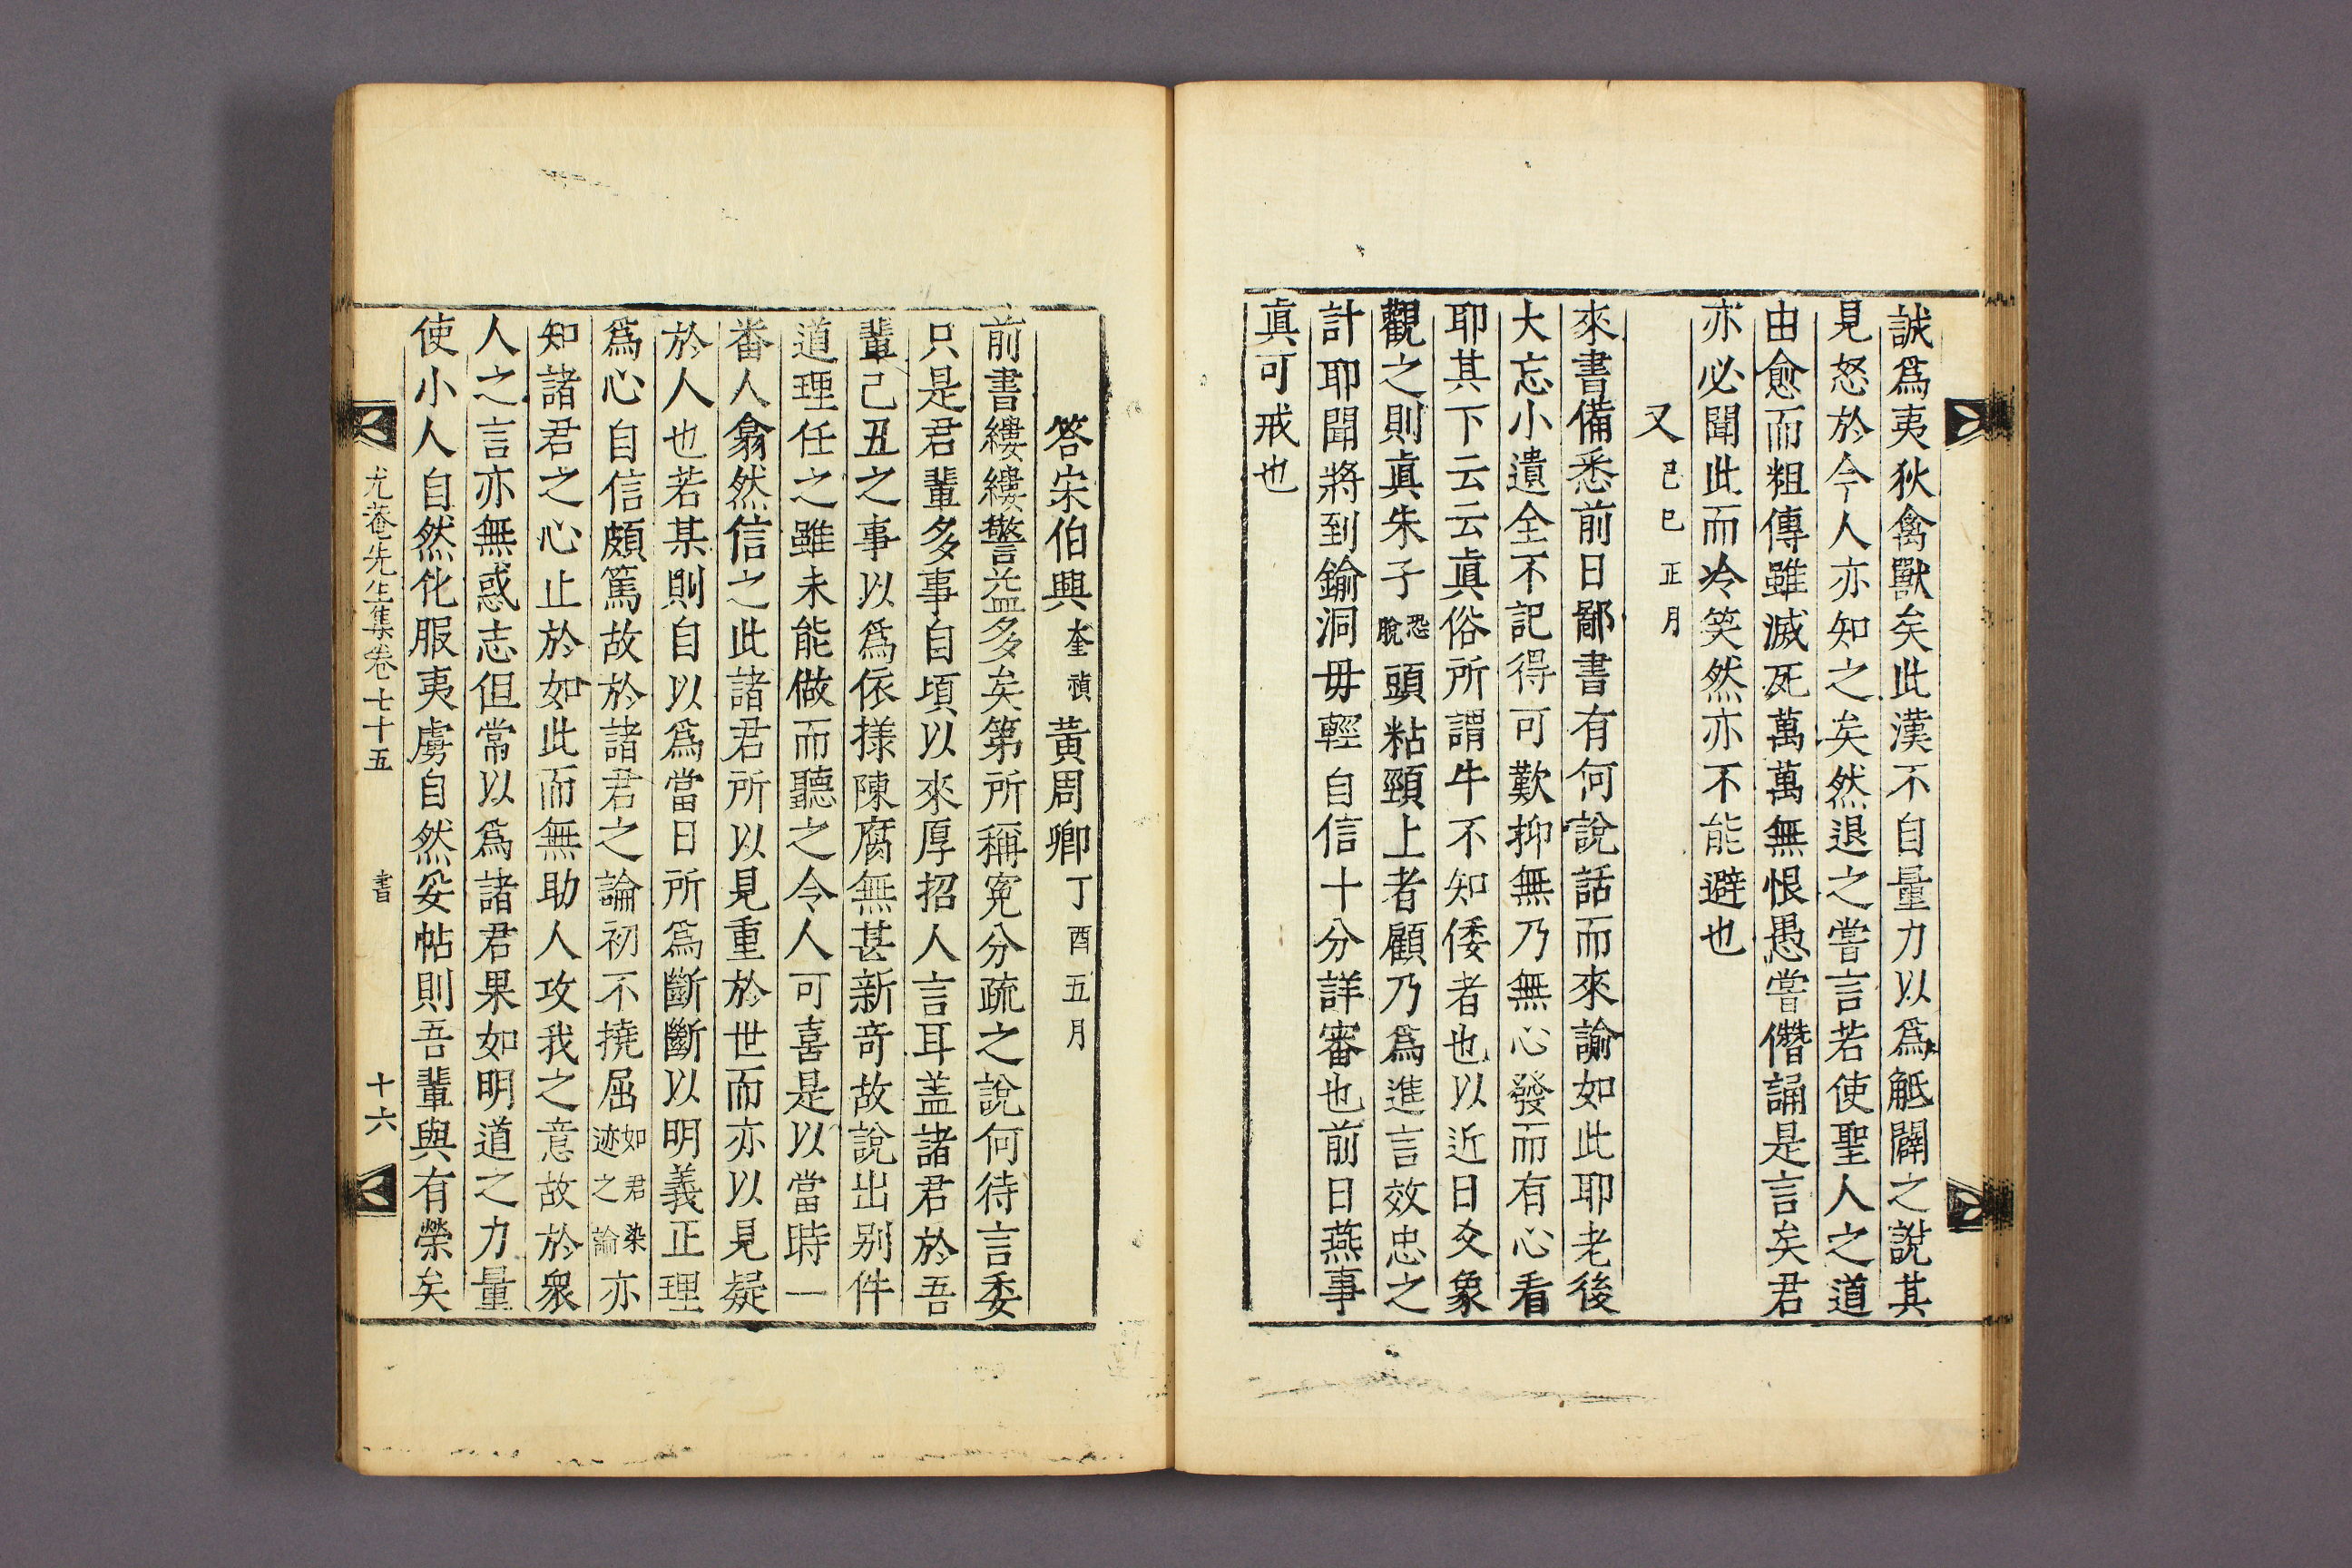 誠爲夷狄禽獸矣此漢不自量力以爲觝闢之說其
見怒於今人亦知之矣然退之嘗言若使聖人之道
由愈而粗傳雖滅死萬萬無恨愚嘗僭誦是言矣君
亦必聞此而冷笑然亦不能避也
又 己巳正月
來書備悉前日鄙書有何說話而來諭如此耶老後
大忘小遺全不記得可歎抑無乃無心發而有心看
耶其下云云眞俗所謂牛不知倭者也以近日爻象
觀之則眞朱子恐脫頭粘頸上者顧乃爲進言效忠之
計耶聞將到鍮洞毋輕自信十分詳審也前日燕事
眞可戒也
答宋伯興奎禎黃周卿丁酉五月
前書縷縷警益多矣第所稱寃分疏之說何待言委
只是君輩多事自頃以來厚招人言耳盖諸君於吾
輩己丑之事以爲依㨾陳腐無甚新奇故說出别件
道理任之雖未能做而聽之令人可喜是以當時一
番人翕然信之此諸君所以見重於世而亦以見疑
於人也若某則自以爲當日所爲斷斷以明義正理
爲心自信頗篤故於諸君之論初不撓屈如君染迹之論亦
知諸君之心止於如此而無助人攻我之意故於衆
人之言亦無惑志但常以爲諸君果如明道之力量
使小人自然化服夷虜自然妥帖則吾輩與有榮矣
尤菴先生集卷七十五 書 十六